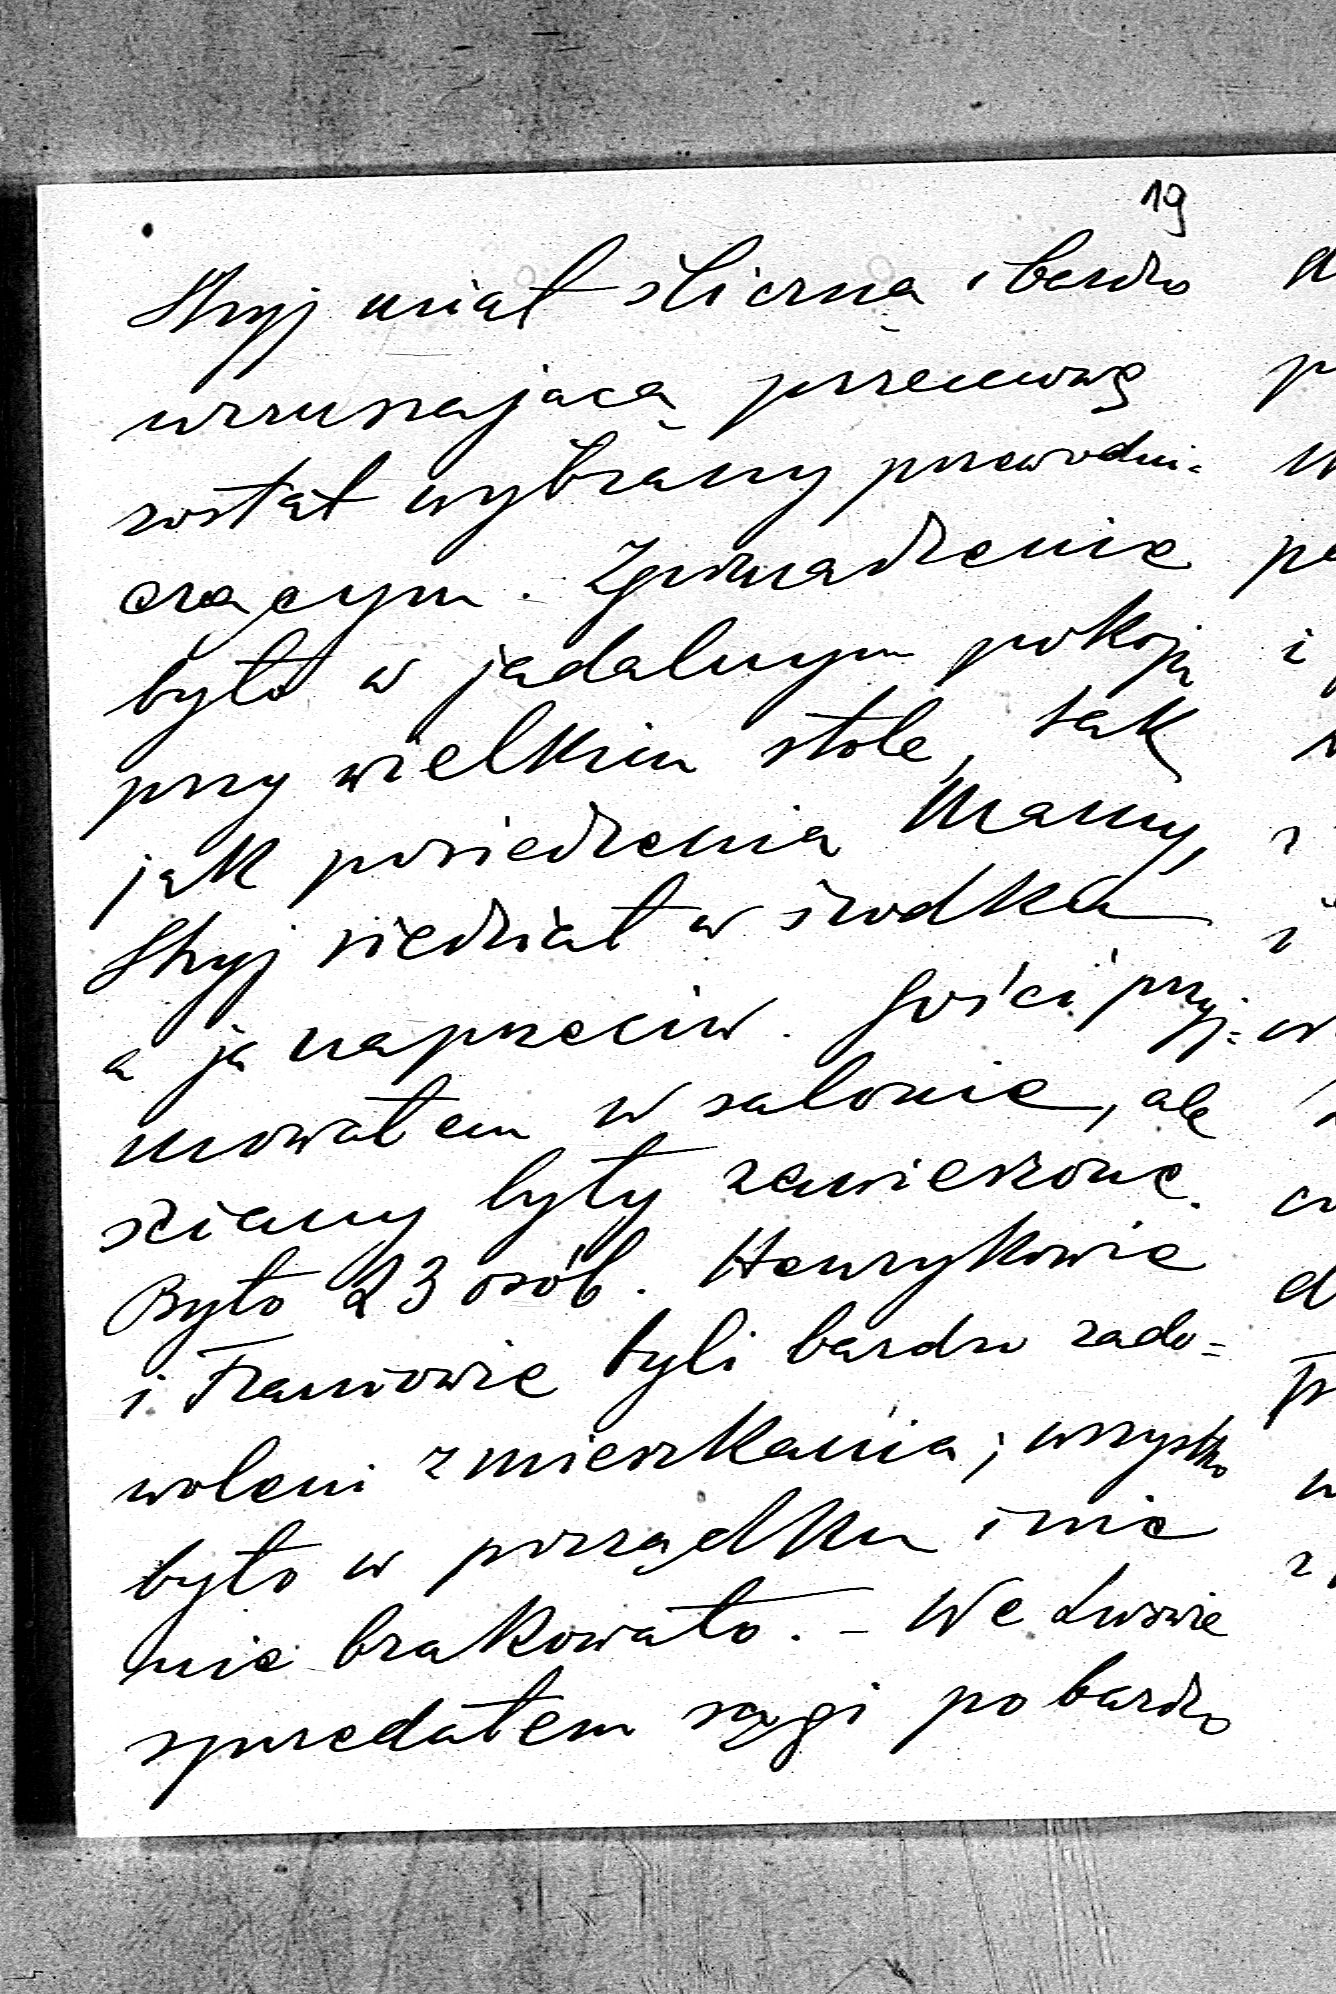 19
Stryj miał śliczną i bardzo
wzruszającą przemowę
został wybrany przewodni=
czącym. Zgromadzenie
było w jadalnym pokoju
przy wielkim stole, tak
jak posiedzenia Mamy,
Stryj siedział w środku
a ja naprzeciw. Gości przyj=
mowałem w salonie, ale
ściany były zawieszone.
Było 23 osób. Henrykowie
i Franiowie byli bardzo zado=
woleni z mieszkania; wszystko
było w porządku i nic
nie brakowało. – We Lwowie
sprzedałem sągi po bardzo